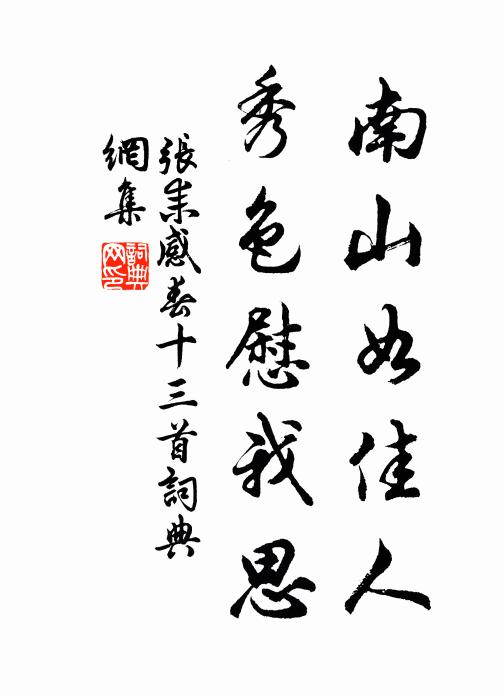 南山如佳人
秀色慰我思
張耒感春十三首詞典
網集
詞典网印